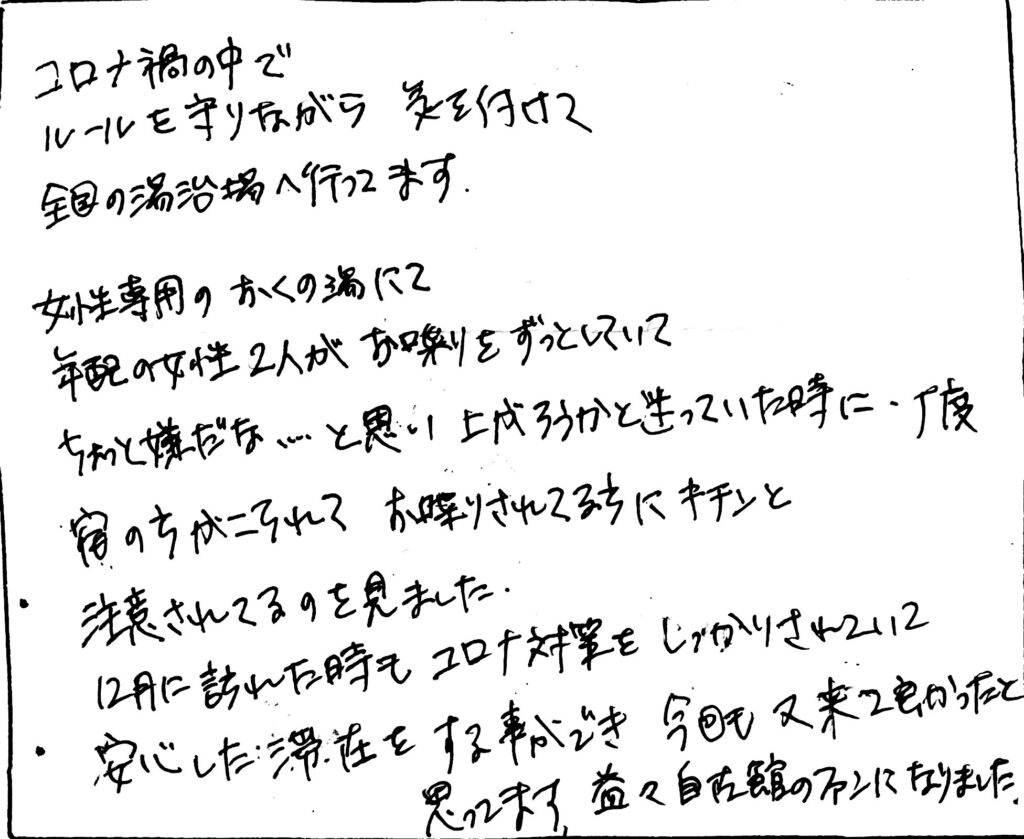 コロナ禍の中で
ルールを守りながら 気を付けて
全国の湯治場へ行ってます.
女性専用の かくの湯にて
年配の女性2人が お喋りをずっとしていて
ちょっと嫌だな…. と思い 上がろうかと迷っていた時に・丁度
宿の方がこられて お喋りされてる方にキチンと
注意されてるのを見ました.
12月に訪れた時も コロナ対策をしっかりされていて
安心した滞在をする事ができ 今回も又来て良かったと
思ってます, 益々自在館のファンになりました.